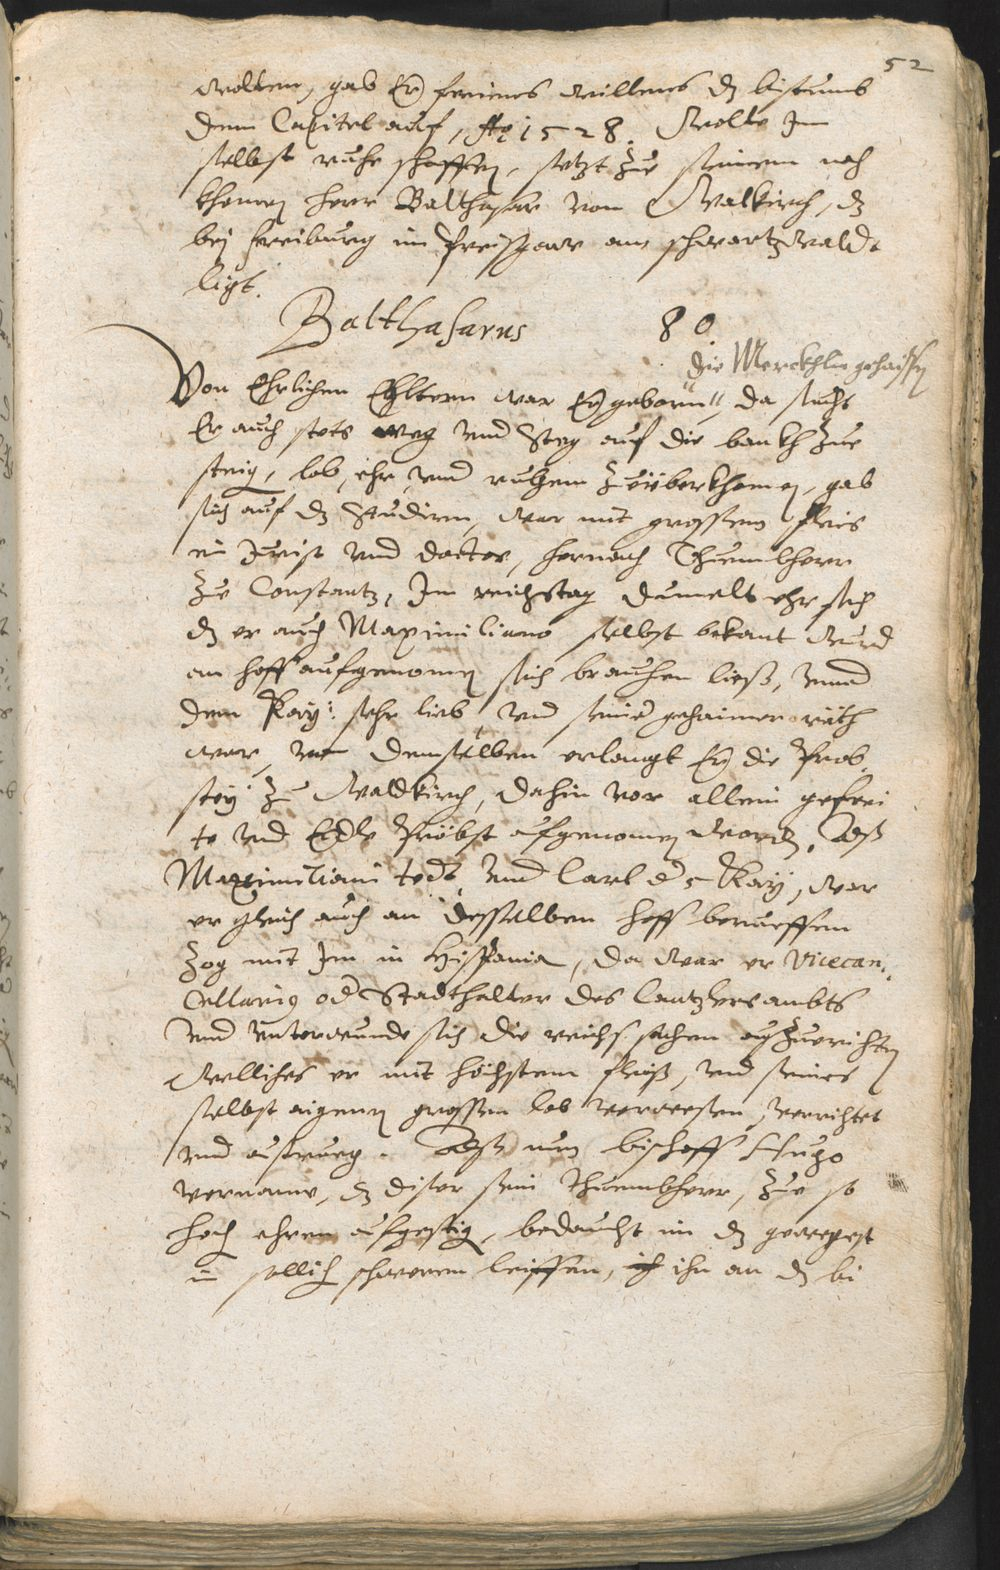 52
wolten, gab Er freiens willens dz bistumb
dem Capitel auf, Ao 1528. Wolte Im
selbst ruhe schaffen, setzt zue seinem nach
khomen herr Balthasar von Walkirch, dz
bei freiburg im Preisgaw am schwartzwald
ligt.
Balthasarus 80
die Merckhlin gehaissen
Von Ehrlichen Elltern war Er geborn, da sucht
Er auch stets weg vnd Steg auf die bankh zue
steig, lob, ehr, vnd ruhem zueüberkhomen, gab
sich auf dz Studirn, war mit grossem fleis
ein Jurist vnd doctor, hernach Thuembherr
zue Constantz, Im reichstag dumelt ehr sich
dz er auch Maximiliano selbst bekant wurd
an hoff aufgenomen sich brauchen ließ, vnnd
dem Kay: sehr lieb vnd seiner gehaimen räth
war, von demselben erlangt Er die Prob
stey zu Waldkirch, dahin vor allein gefrei
te vnd Edle Pröbst aufgenomen worden. Alß
Maximiliani todt vnd Carl d 5 Kay, war
er gleich auch an desselben hoff beruoffen
Zog mit Im in Hispania, da war er Vicecan
Cellarius od Stadthalter des Cantzlersambts
vnd vnterwunde sich die reichs sachen auszuerichten
Welliches er mit höchstem fleiß, vnd seines
selbst aignen grossen lob verwesen, verrichtet
vnd austrueg. Alß nun bischoff Hugo
vername, dz diser sein Thuembherr, zue so
hoch ehren aufgestig, bedaucht in dz
in sollich schweren leiffen, ihn an dz bi